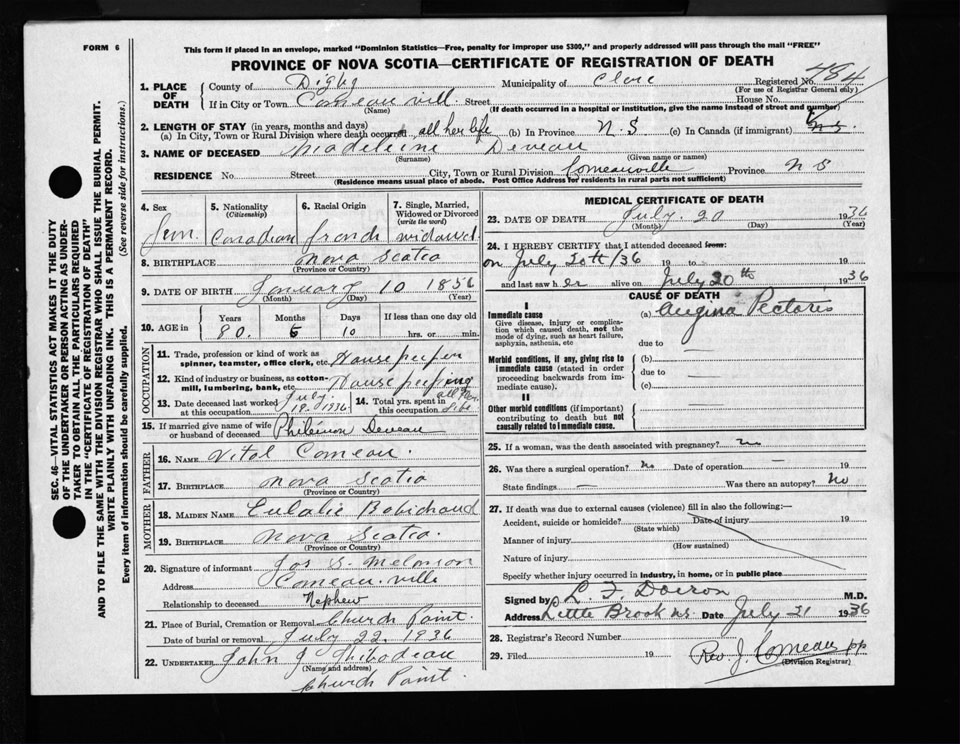 FORM 6
This form if placed in an envelope, marked "Dominion Statistics—Free, penalty for improper use $300," and properly addressed will pass through the mail "FREE"
PROVINCE OF NOVA SCOTIA—CERTIFICATE OF REGISTRATION OF DEATH
1. PLACE OF DEATH County of Digby Municipality of Clare Registered No. 484
(For use of Registrar General only)
If in City or Town Comeauville Street House No.
(Name) (If death occurred in a hospital or institution, give the name instead of street and number)
2. LENGTH OF STAY (in years, months and days)
(a) In City, Town or Rural Division where death occurred all her life (b) In Province N.S (c) In Canada (if immigrant) N.S.
3. NAME OF DECEASED Madeleine Deveau
(Surname) (Given name or names)
RESIDENCE No. Street City, Town or Rural Division Comeauville Province N S
(Residence means usual place of abode. Post Office Address for residents in rural parts not sufficient)
4. Sex 5. Nationality (Citizenship) 6. Racial Origin 7. Single, Married, Widowed or Divorced (write the word)
Fem. Canadian french widowed
8. BIRTHPLACE Nova Scotia
(Province or Country)
9. DATE OF BIRTH January 10 1856
(Month) (Day) (Year)
10. AGE in Years Months Days If less than one day old
80. 6 10 hrs. or min.
OCCUPATION
11. Trade, profession or kind of work as spinner, teamster, office clerk, etc. House keeper
12. Kind of industry or business, as cotton-mill, lumbering, bank, etc. House keeping
13. Date deceased last worked at this occupation July 19. 1936 14. Total yrs. spent in this occupation all her life
15. If married give name of wife or husband of deceased Philémon Deveau
FATHER
16. NAME Vital Comeau.
17. BIRTHPLACE Nova Scotia
(Province or Country)
MOTHER
18. MAIDEN NAME Eulalie Robichaud
19. BIRTHPLACE Nova Scotia.
(Province or Country)
20. Signature of informant Jos S. Melanson
Address Comeauville
Relationship to deceased Nephew
21. Place of Burial, Cremation or Removal Church Point.
Date of burial or removal July 22. 1936
22. UNDERTAKER John J Thibodeau
(Name and address)
Church Point.
MEDICAL CERTIFICATE OF DEATH
23. DATE OF DEATH July. 20 1936
(Month) (Day) (Year)
24. I HEREBY CERTIFY that I attended deceased from:
on July 20th/36 19 to 19
and last saw h er alive on July 20th 1936
CAUSE OF DEATH
I
Immediate cause (a) Angina Pectoris
Give disease, injury or complication which caused death, not the mode of dying, such as heart failure, asphyxia, asthenia, etc. due to
Morbid conditions, if any, giving rise to immediate cause (stated in order proceeding backwards from immediate cause). (b)
due to
(c)
II
Other morbid conditions (if important) contributing to death but not causally related to immediate cause.
25. If a woman, was the death associated with pregnancy? no
26. Was there a surgical operation? no Date of operation 19
State findings Was there an autopsy? no
27. If death was due to external causes (violence) fill in also the following:—
Accident, suicide or homicide? Date of injury 19
(State which)
Manner of injury
(How sustained)
Nature of injury
Specify whether injury occurred in industry, in home, or in public place
Signed by L. F. Doiron M.D.
Address Little Brook N.S. Date July 21 1936
28. Registrar's Record Number
29. Filed 19 Rev. J. Comeau pp
(Division Registrar)
SEC. 46—VITAL STATISTICS ACT MAKES IT THE DUTY
OF THE UNDERTAKER OR PERSON ACTING AS UNDER-
TAKER TO OBTAIN ALL THE PARTICULARS REQUIRED
IN THE "CERTIFICATE OF REGISTRATION OF DEATH"
AND TO FILE THE SAME WITH THE DIVISION REGISTRAR, WHO SHALL ISSUE THE BURIAL PERMIT.
WRITE PLAINLY WITH UNFADING INK. THIS IS A PERMANENT RECORD.
Every item of information should be carefully supplied. (See reverse side for instructions.)